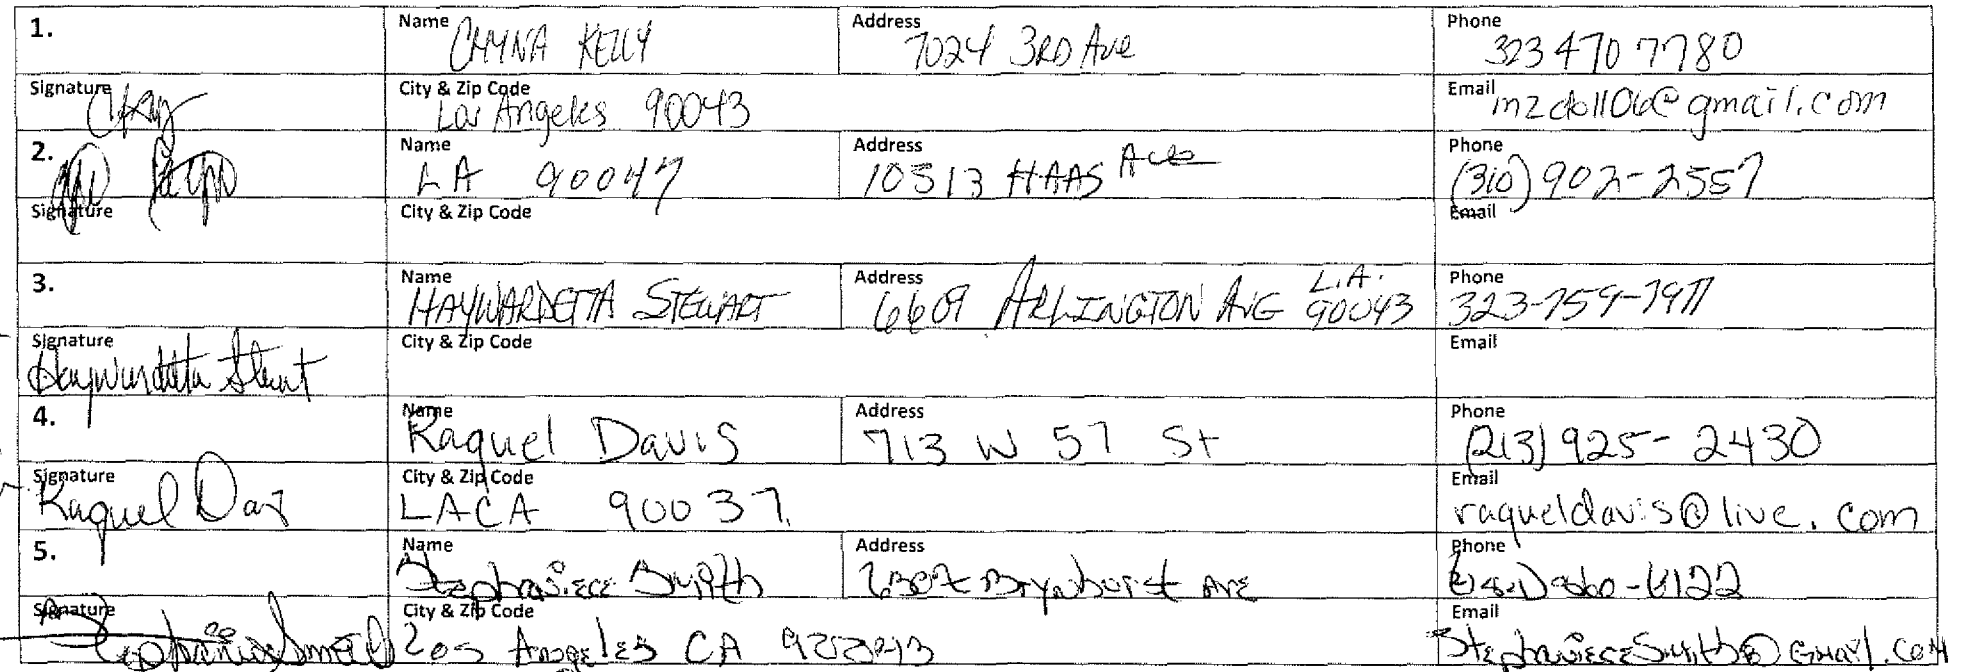 1. Name CHYNA KELLY Address 7024 3RD Ave Phone 323 470 7780
Signature City & Zip Code Los Angeles 90043 Email mzdoll06@gmail.com
2. Name LA 90047 Address 10513 HAAS Ave Phone (310) 902-2557
Signature City & Zip Code Email
3. Name HAYWARDETTA STEWART Address 6609 ARLINGTON AVE L.A. 90043 Phone 323-759-7977
Signature Haywardetta Stewart City & Zip Code Email
4. Name Raquel Davis Address 713 W 57 St Phone (213) 925-2430
Signature Raquel Davis City & Zip Code LA CA 90037 Email raqueldavis@live.com
5. Name Stephaniece Smith Address Brynhurst Ave Phone
Signature City & Zip Code Los Angeles CA Email StephanieceSmith@Gmail.com